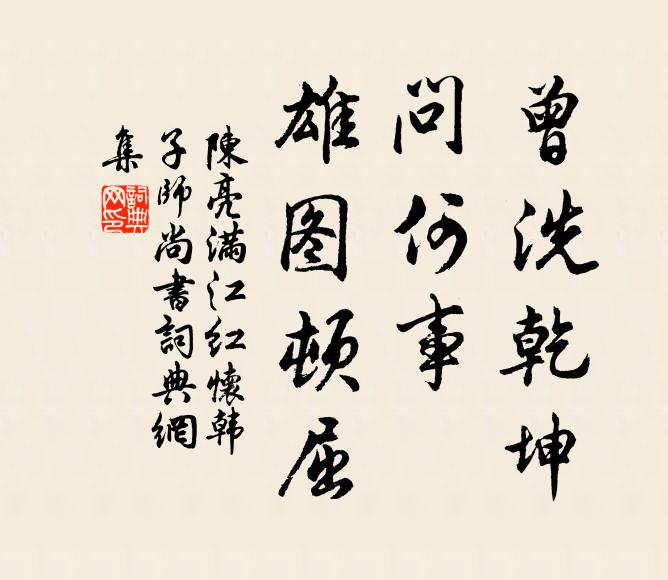 曾洗乾坤
問何事
雄图顿屈
陳亮滿江红懷韩
子師尚書詞典網
集
詞典
网印